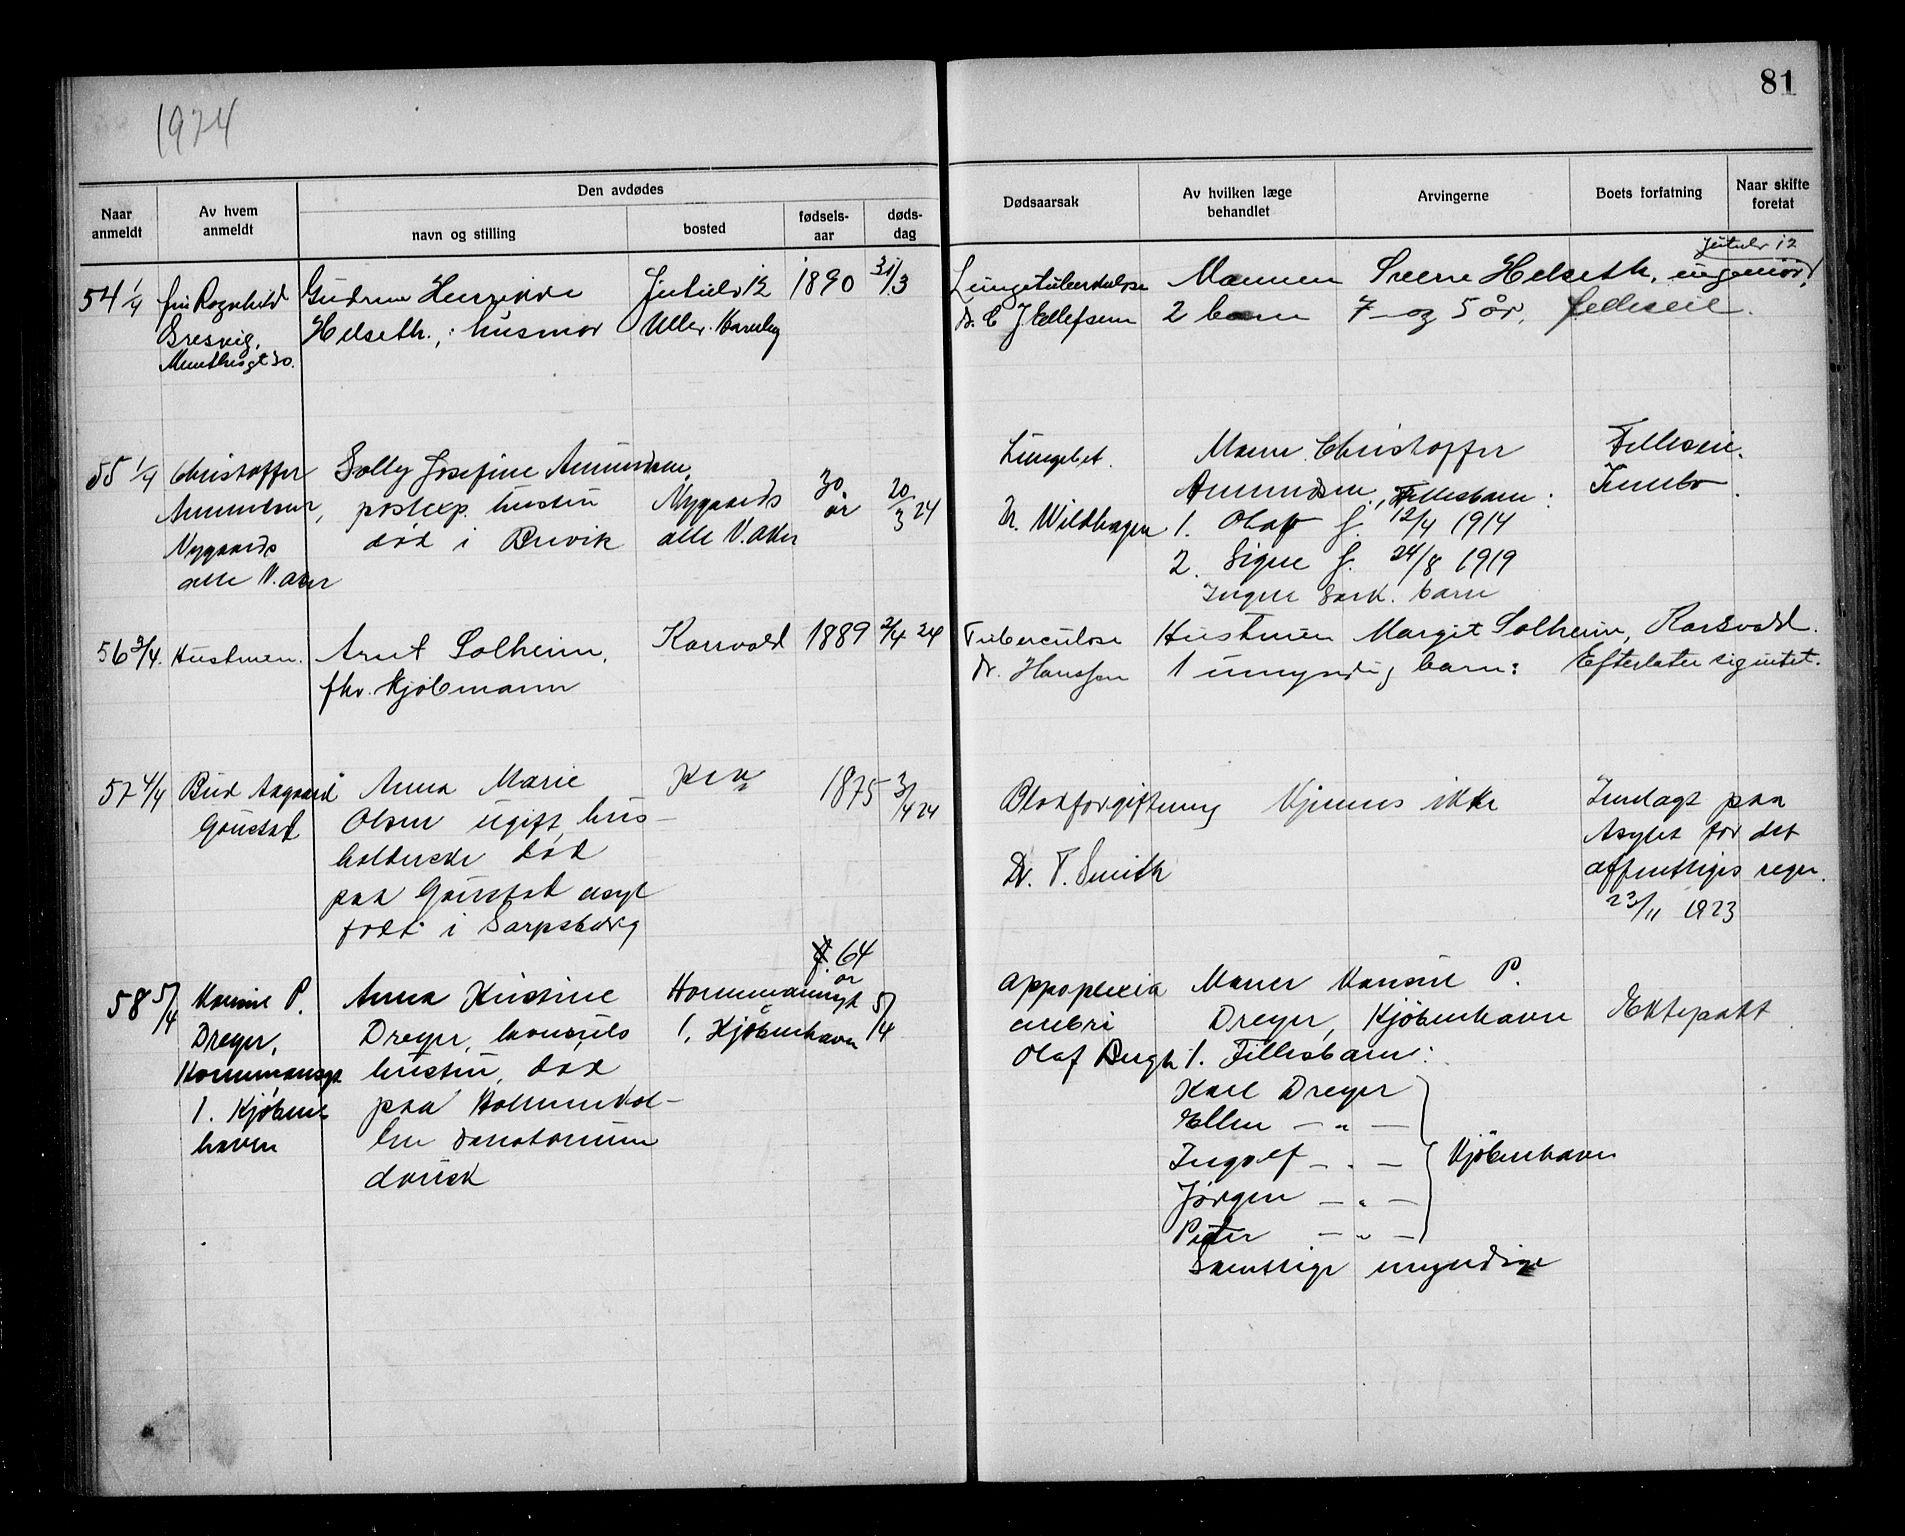 1924
81
Naar anmeldt
Av hvem anmeldt
Den avdødes
navn og stilling
bosted
fødsels-aar
døds-dag
Dødsaarsak
Av hvilken læge behandlet
Arvingerne
Boets forfatning
Naar skifte foretat
54 1/4
fru Ragnhild
Gresvig,
Munthesgt 30.
Gudrun Henrikke
Helseth, husmor
Jutulv 12
Uller. Hameby
1890
31/3
Lungetuberkulose
Dr. C J Ellefsen
Jutulv 12
Mannen Sverre Helseth, ingeniør,
2 barn 7 og 5 år, felleseie.
55 1/4
Christoffer
Amundsen,
Nygaards
alle V. Aker
Solly Josefine Amundsen,
postexp. hustru
død i Brevik
Nygaards
alle V. Aker
30
år
20/3 24
Lungebet.
Dr. Wildhagen
Mann Christoffer
Amundsen, Fellesbarn:
1. Olaf f. 12/4 1914
2. Signe f. 24/8 1919
Ingen særk. barn
Felleseie.
Innbo.
56 3/4.
Hustruen.
Arnt Solheim,
fhv. Kjøbmann
Korsvold
1889
2/4 24
Tuberculose
Dr. Hanssen
Hustruen Margit Solheim, Korsvold.
1 umyndig barn: Efterlater sig intet.
57 4/4
Bud Aagaard
Gaustad
Anna Marie
Olsen ugift, hus-
holderske død
paa Gaustad asyl
født i Sarpsborg
Kra
1875
3/4 24
Blodforgiftning
Dr. T. Smith
Kjennes ikke
Innlagt paa
Asylet for det
offentliges regn.
23/11 1923
58 5/4
Konsul P.
Dreyer,
Hornemansgt
1. Kjøben-
havn
Anna Kristine
Dreyer, konsuls
hustru, død
paa Holmenkol-
len Sanatorium
dansk
Hornemansgt
1, Kjøbenhavn
f. 64
år
5/4
Appoplexia
cerebri
Olaf Bugh
Mann Konsul P.
Dreyer, Kjøbenhavn
1. Fellesbarn:
Karl Dreyer
Ellen — " —
Ingolf — " — Kjøbenhavn
Jørgen — " —
Peter — " —
Samtlige umyndige
Ektepakt